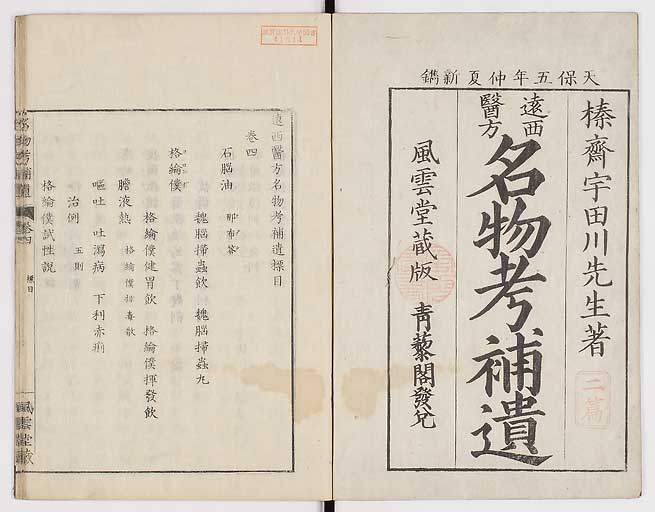 天保五年仲夏新鐫
榛齋宇田川先生著
二篇
遠西
醫方
名物考補遺
風雲堂蔵版
青藜閣發兌
遠西醫方名物考補遺標目
卷四
石腦油
魏腦掃蟲飲 魏腦掃蟲丸
格綸僕
格綸僕健胃飲 格綸僕揮發飲
膽液熱 格綸僕排毒散
嘔吐 吐瀉病 下利赤痢
治例 五則
格綸僕試性說
名物考補遺 卷四
標目
風雲堂蔵